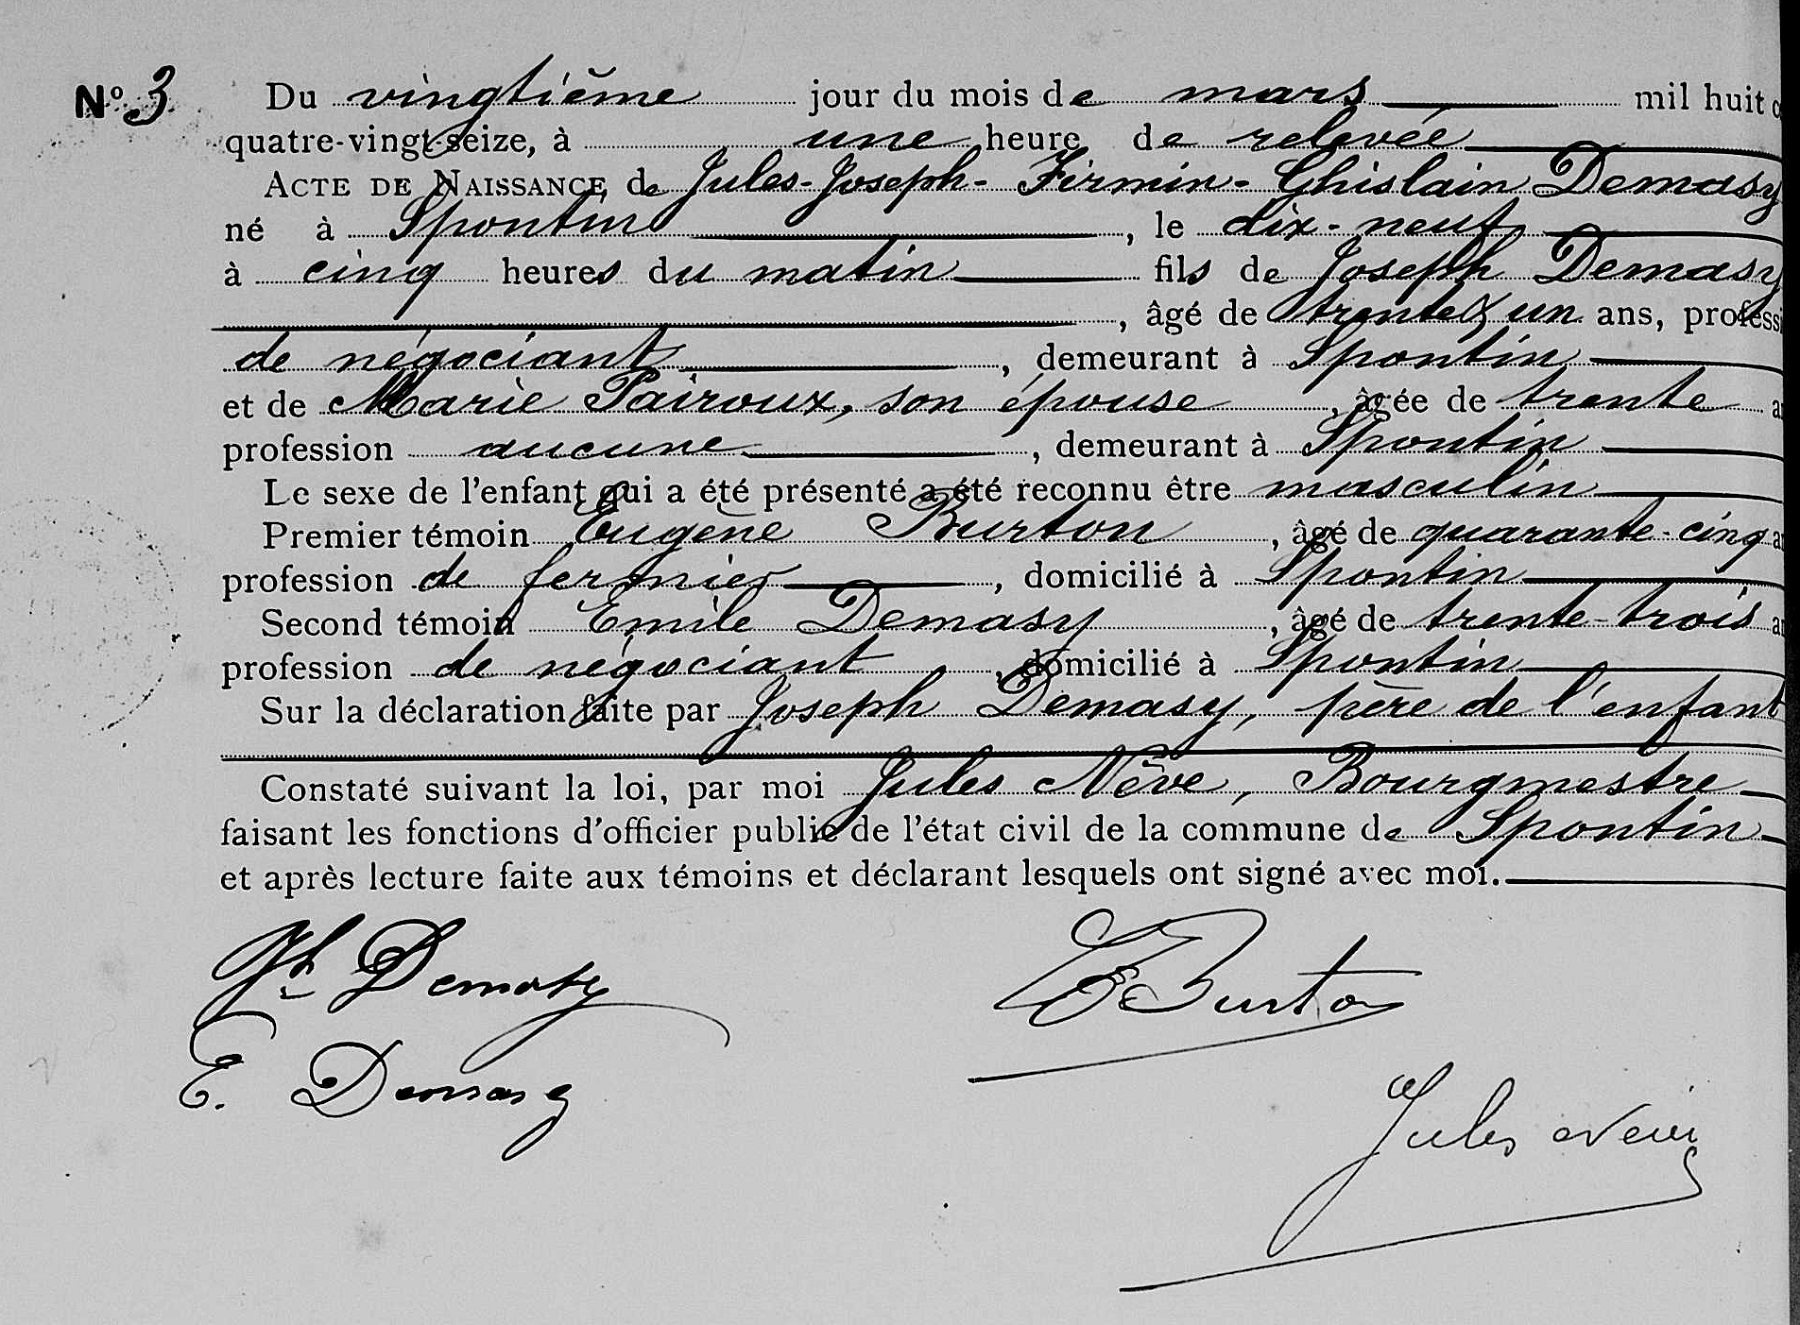 Nº 3 Du vingtième jour du mois de mars mil huit c
quatre-vingt-seize, à une heure de relevée
ACTE DE NAISSANCE de Jules-Joseph-Firmin-Ghislain Demasy
né à Spontin, le dix-neuf
à cinq heures du matin fils de Joseph Demasy
, âgé de trente & un ans, professi
de négociant, demeurant à Spontin
et de Marie Pairoux, son épouse, âgée de trente a
profession aucune, demeurant à Spontin
Le sexe de l'enfant qui a été présenté a été reconnu être masculin
Premier témoin Eugène Burton, âgé de quarante-cinq a
profession de fermier, domicilié à Spontin
Second témoin Emile Demasy, âgé de trente-trois a
profession de négociant, domicilié à Spontin
Sur la déclaration faite par Joseph Demasy, père de l'enfant
Constaté suivant la loi, par moi Jules Nève, Bourgmestre
faisant les fonctions d'officier public de l'état civil de la commune de Spontin
et après lecture faite aux témoins et déclarant lesquels ont signé avec moi.
Jh Demasy E Burton
E. Demasy
Jules Neve